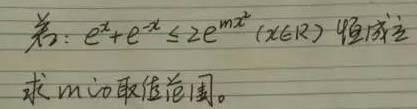 若：e^x+e^{-x}≤2e^{mx²}（x∈R）恒成立
求m的取值范围。